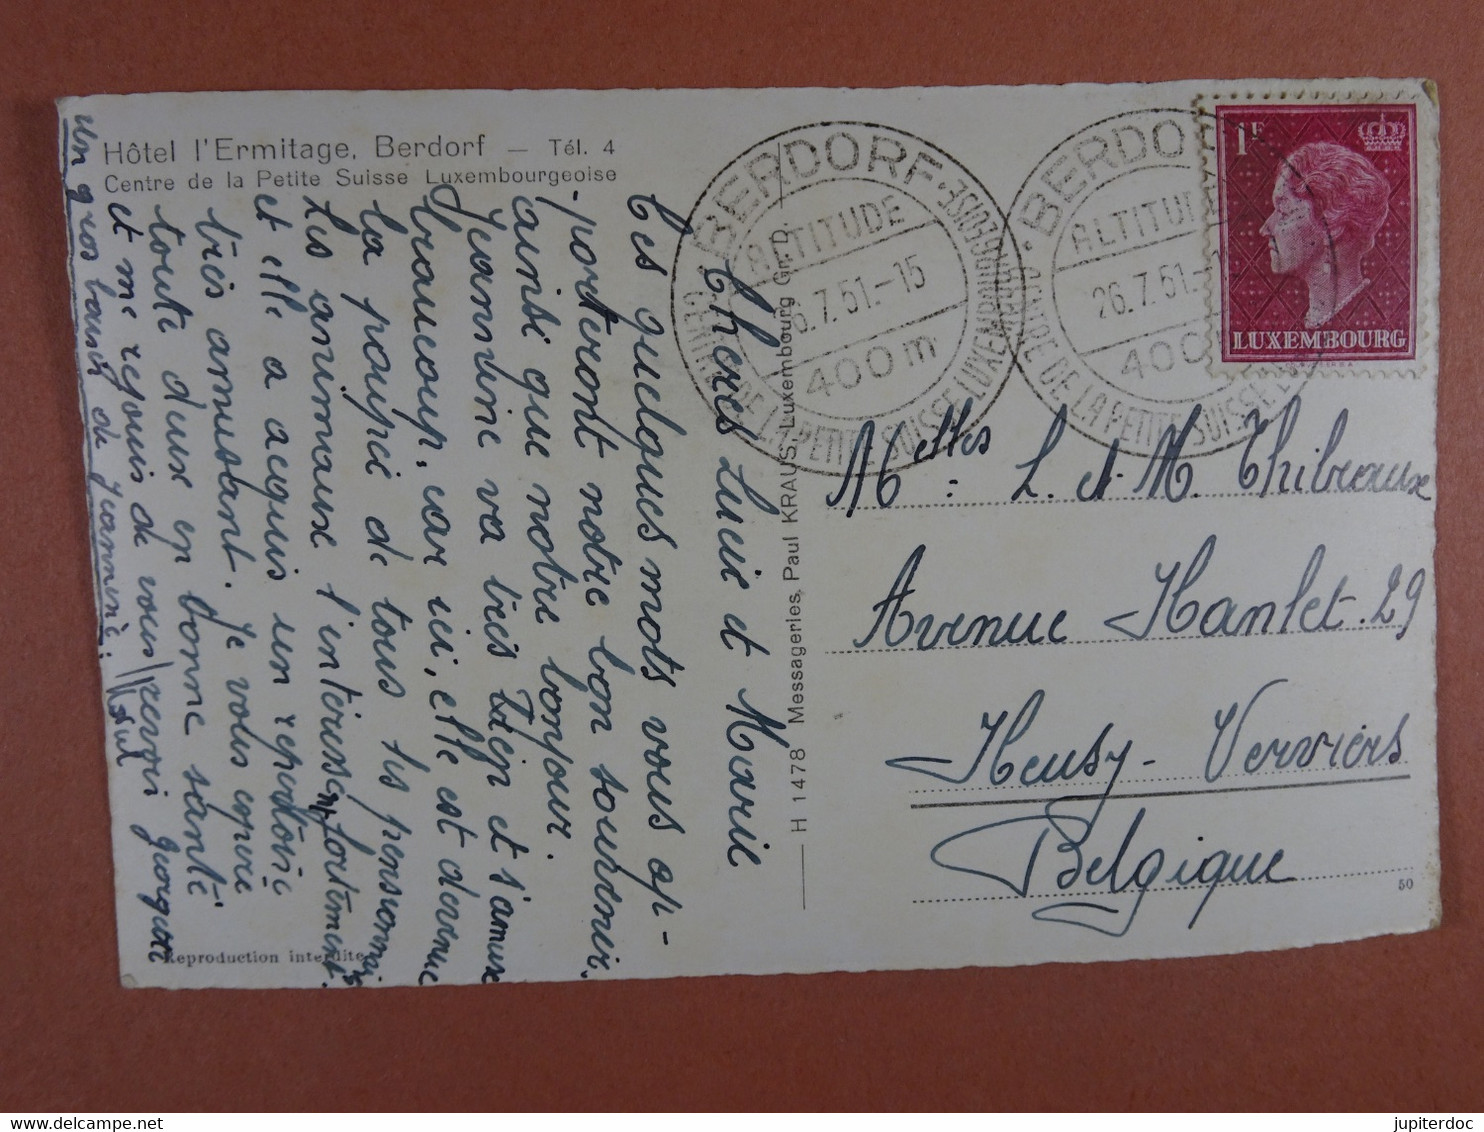 Hôtel l'Ermitage, Berdorf — Tél. 4
Centre de la Petite Suisse Luxembourgeoise
Chères Lucie et Marie
Ces quelques mots vous ap-
porteront notre bon souvenir,
ainsi que notre bonjour.
Jeannine va très bien et s'amuse
beaucoup, car ici, elle est devenue
la poupée de tous les pensionnaires
Les animaux l'intéressent fortement
et elle a acquis un répertoire
très amusant. Je vous espère
toute deux en bonne santé
et me réjouis de vous revoir Georgette
un gros baiser de Jeannine.
Reproduction interdite
H 1478 Messageries Paul KRAUS, Luxembourg Gr. D.
BERDORF
ALTITUDE
26.7.51.-15
400 m
CENTRE DE LA PETITE SUISSE LUXEMBOURGEOISE
BERDORF
ALTITUDE
26.7.51.
400
CENTRE DE LA PETITE SUISSE
1F
LUXEMBOURG
Melles L. et M. Thibeaux
Avenue Hanlet. 29
Heusy-Verviers
Belgique
50
delcampe.net
jupiterdoc